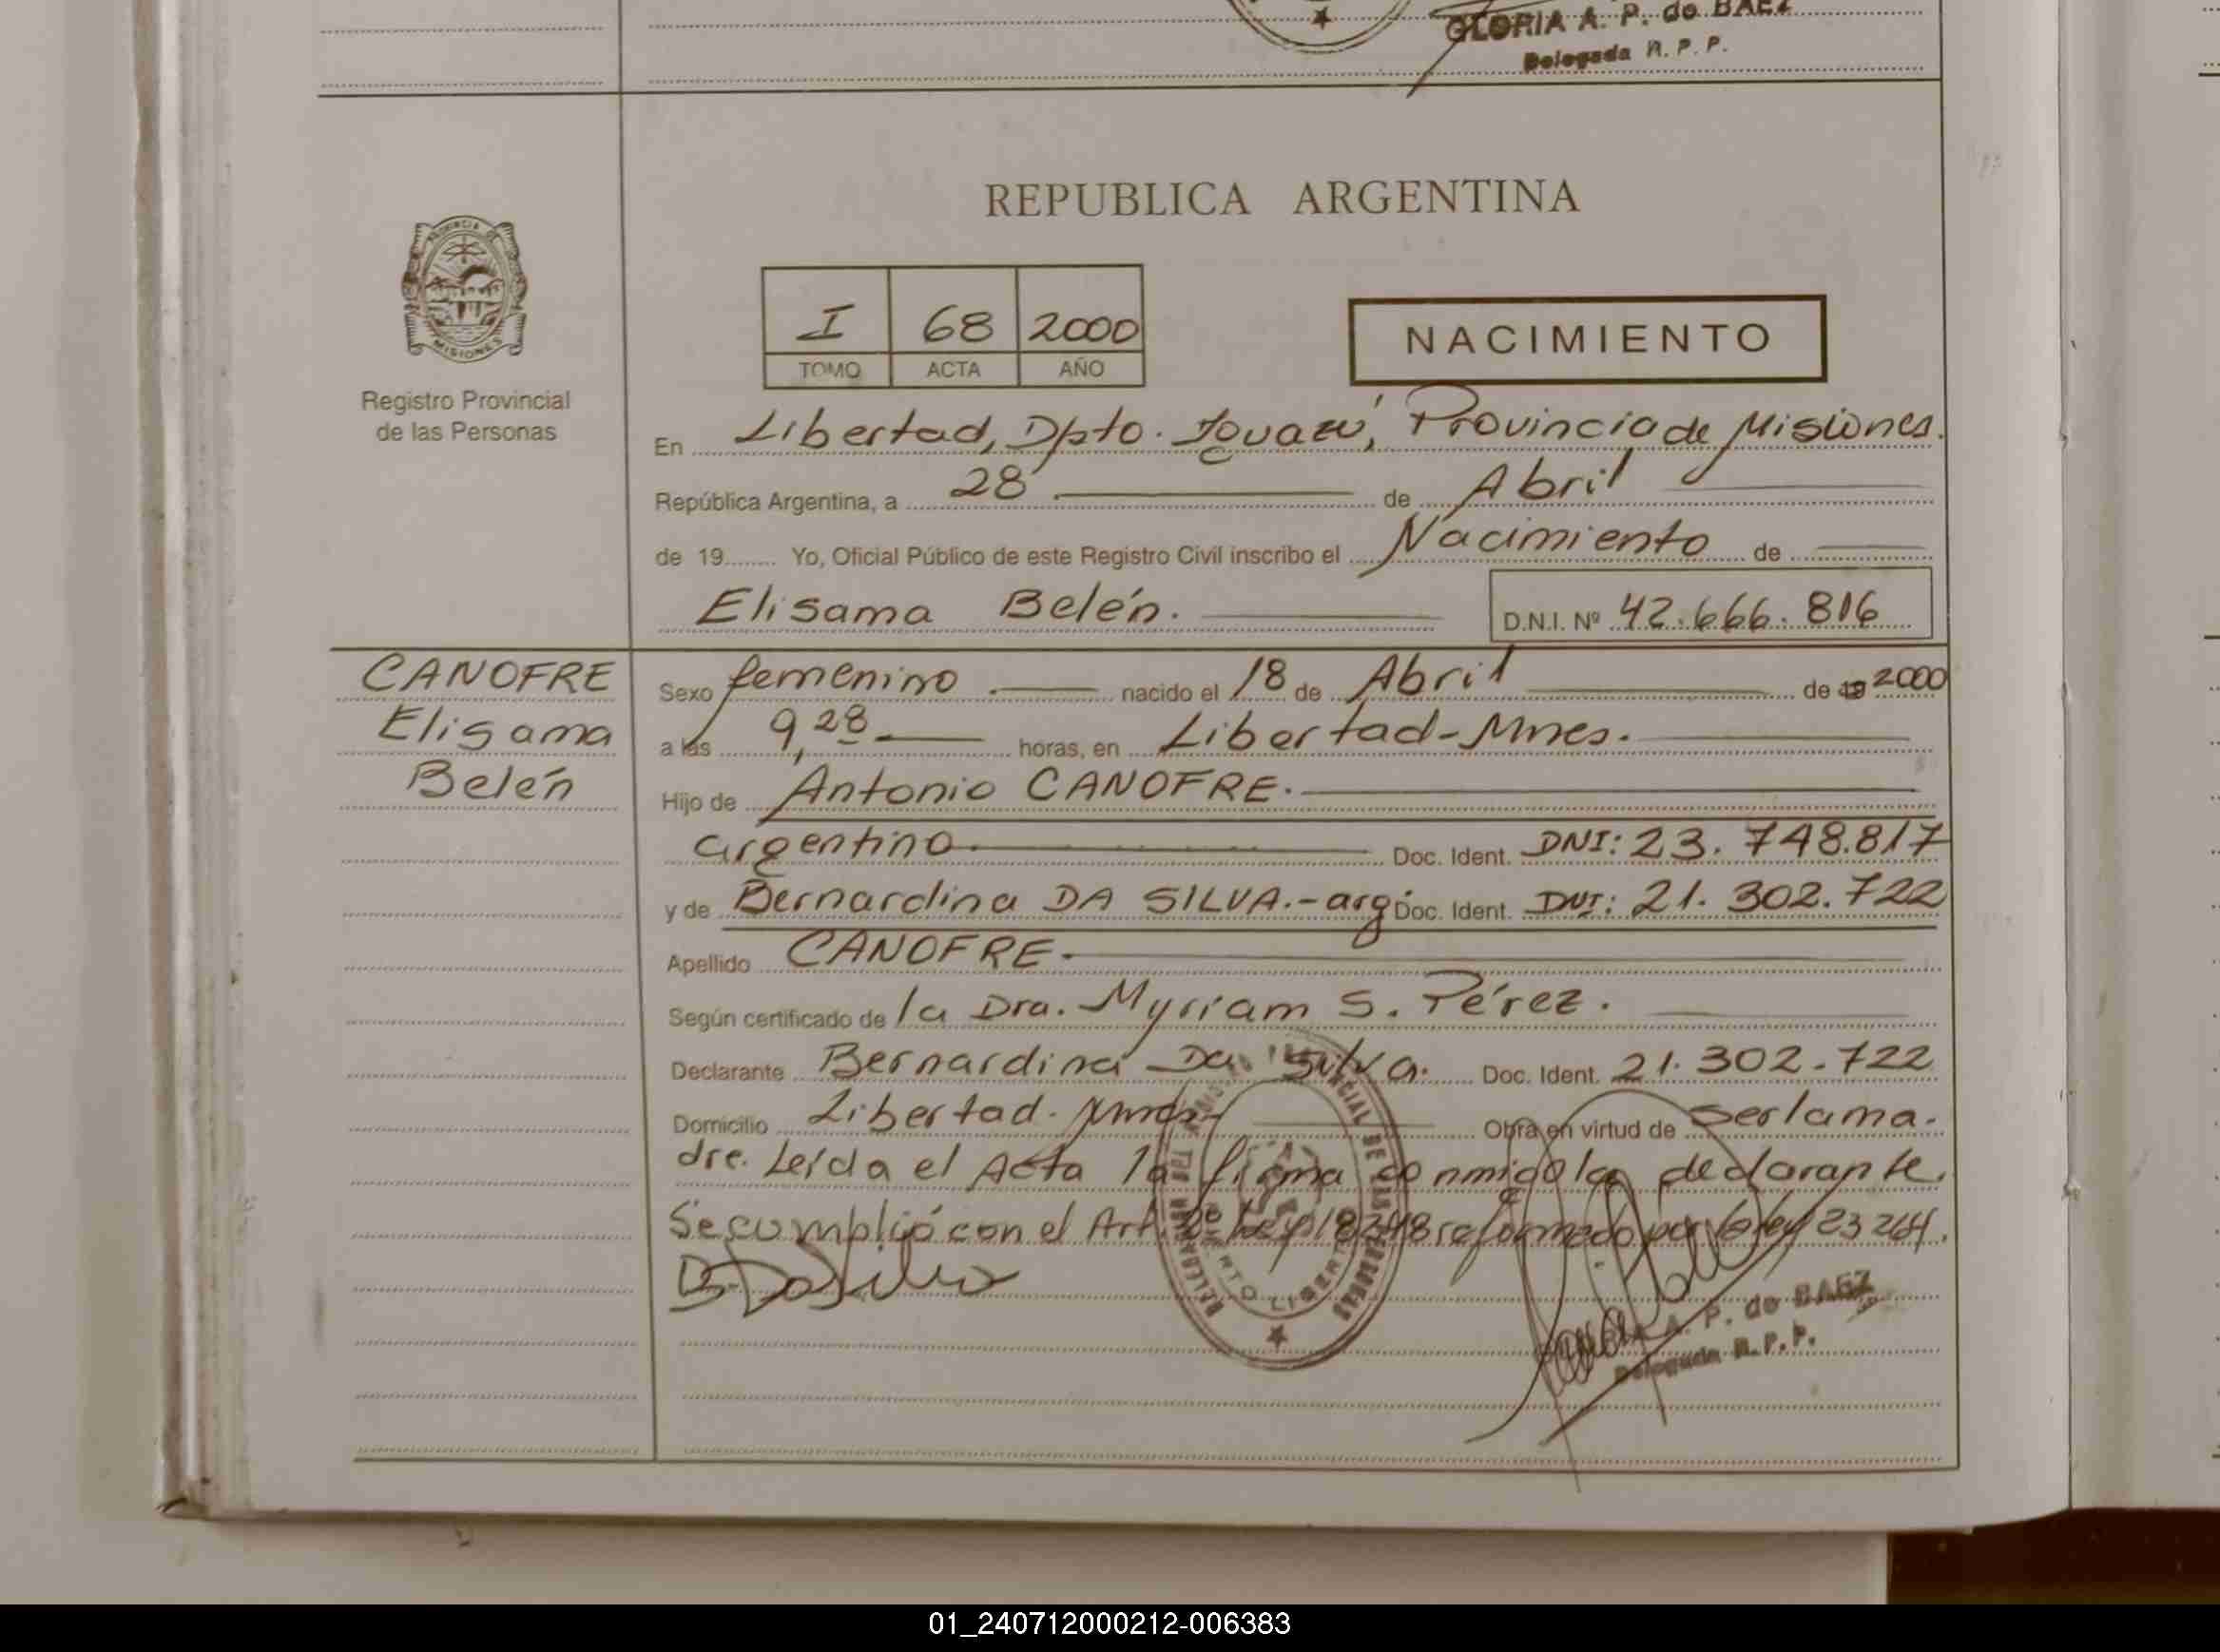 GLORIA A. P. de BAEZ
Delegada R. P. P.
REPUBLICA ARGENTINA
PROVINCIA DE
MISIONES
Registro Provincial
de las Personas
I 68 2000
TOMO ACTA AÑO
NACIMIENTO
En Libertad, Dpto. Iguazú, Provincia de Misiones.
República Argentina, a 28 de Abril
de 19 Yo, Oficial Público de este Registro Civil inscribo el Nacimiento de
Elisama Belén.
D.N.I. Nº 42.666.816
CANOFRE
Elisama
Belén
Sexo femenino. nacido el 18 de Abril de 19 2000
a las 9,28 horas, en Libertad-Mnes.
Hijo de Antonio CANOFRE.
argentino Doc. Ident. DNI: 23.748.817
y de Bernardina DA SILVA.-arg. Doc. Ident. DNI: 21.302.722
Apellido CANOFRE.
Según certificado de la Dra. Myriam S. Pérez.
Declarante Bernardina Da Silva. Doc. Ident. 21.302.722
Domicilio Libertad. Mnes- Obra en virtud de ser la ma-
dre. Leída el Acta la firma conmigo la declarante.
Se cumplió con el Art. 2º Ley 18248 reformado por la ley 23264.
B. Da Silva
PUERTO LIBERTAD
A. P. de BAEZ
Delegada R. P. P.
01_240712000212-006383